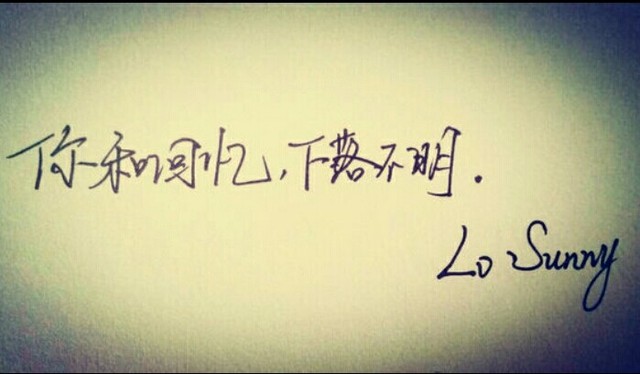 你和回忆,下落不明.
Lo Sunny